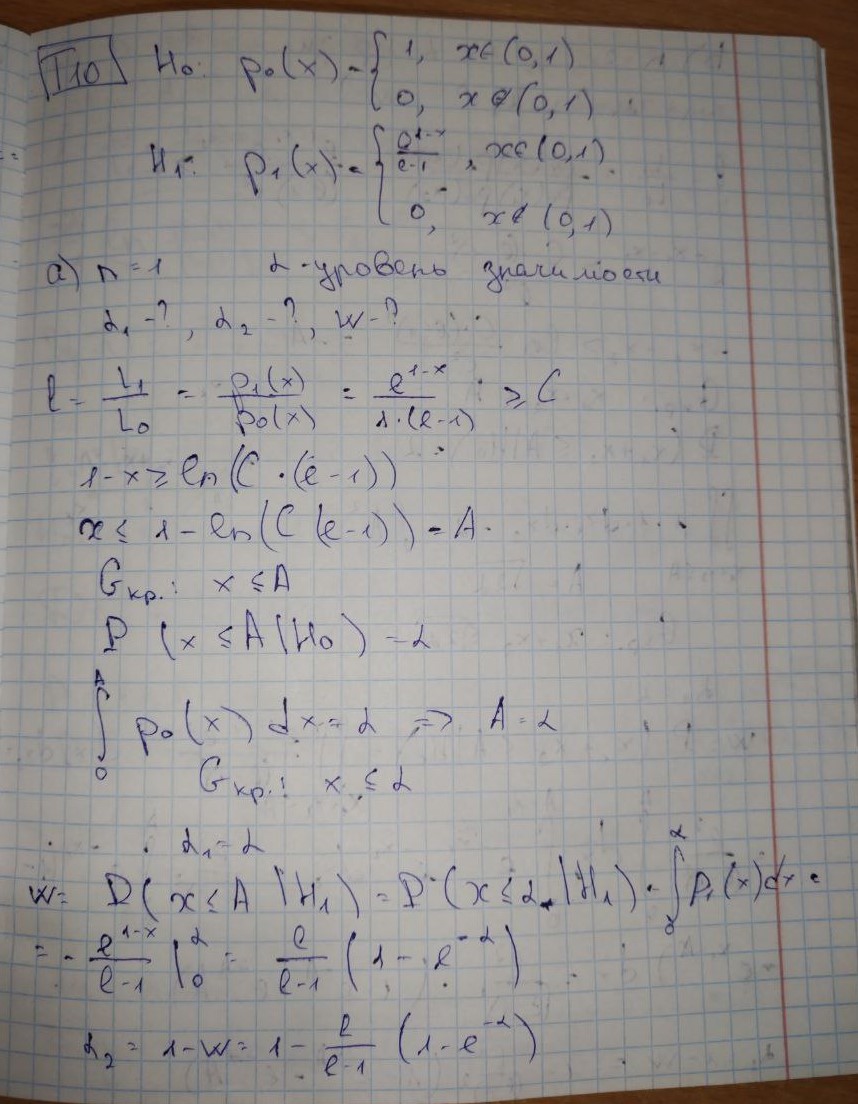 T10 H₀: p₀(x) = { 1, x∈(0,1)
0, x∉(0,1)
H₁: p₁(x) = { e^{1-x}/(e-1), x∈(0,1)
0, x∉(0,1)
а) n=1 α-уровень значимости
α₁-?, α₂-?, W-?
l = L₁/L₀ = p₁(x)/p₀(x) = e^{1-x}/(1·(e-1)) ≥ C
1-x ≥ ln(C·(e-1))
x ≤ 1-ln(C(e-1)) = A
Gкр.: x ≤ A
P(x ≤ A|H₀) = α
∫₀^A p₀(x) dx = α => A = α
Gкр.: x ≤ α
α₁ = α
W = P(x ≤ A|H₁) = P(x ≤ α|H₁) = ∫₀^α p₁(x)dx =
= -e^{1-x}/(e-1) |₀^α = e/(e-1) (1-e^{-α})
α₂ = 1-W = 1 - e/(e-1) (1-e^{-α})